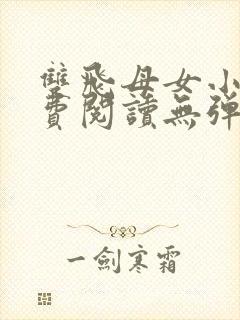 雙飛母女小
費閱讀無彈
一劍寒霜